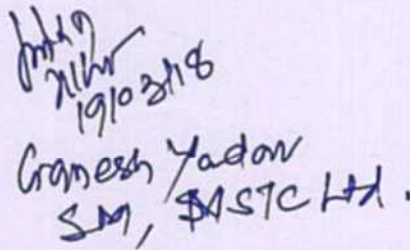 19/03/18
Ganesh Yadav
SM, BASTC Ltd.